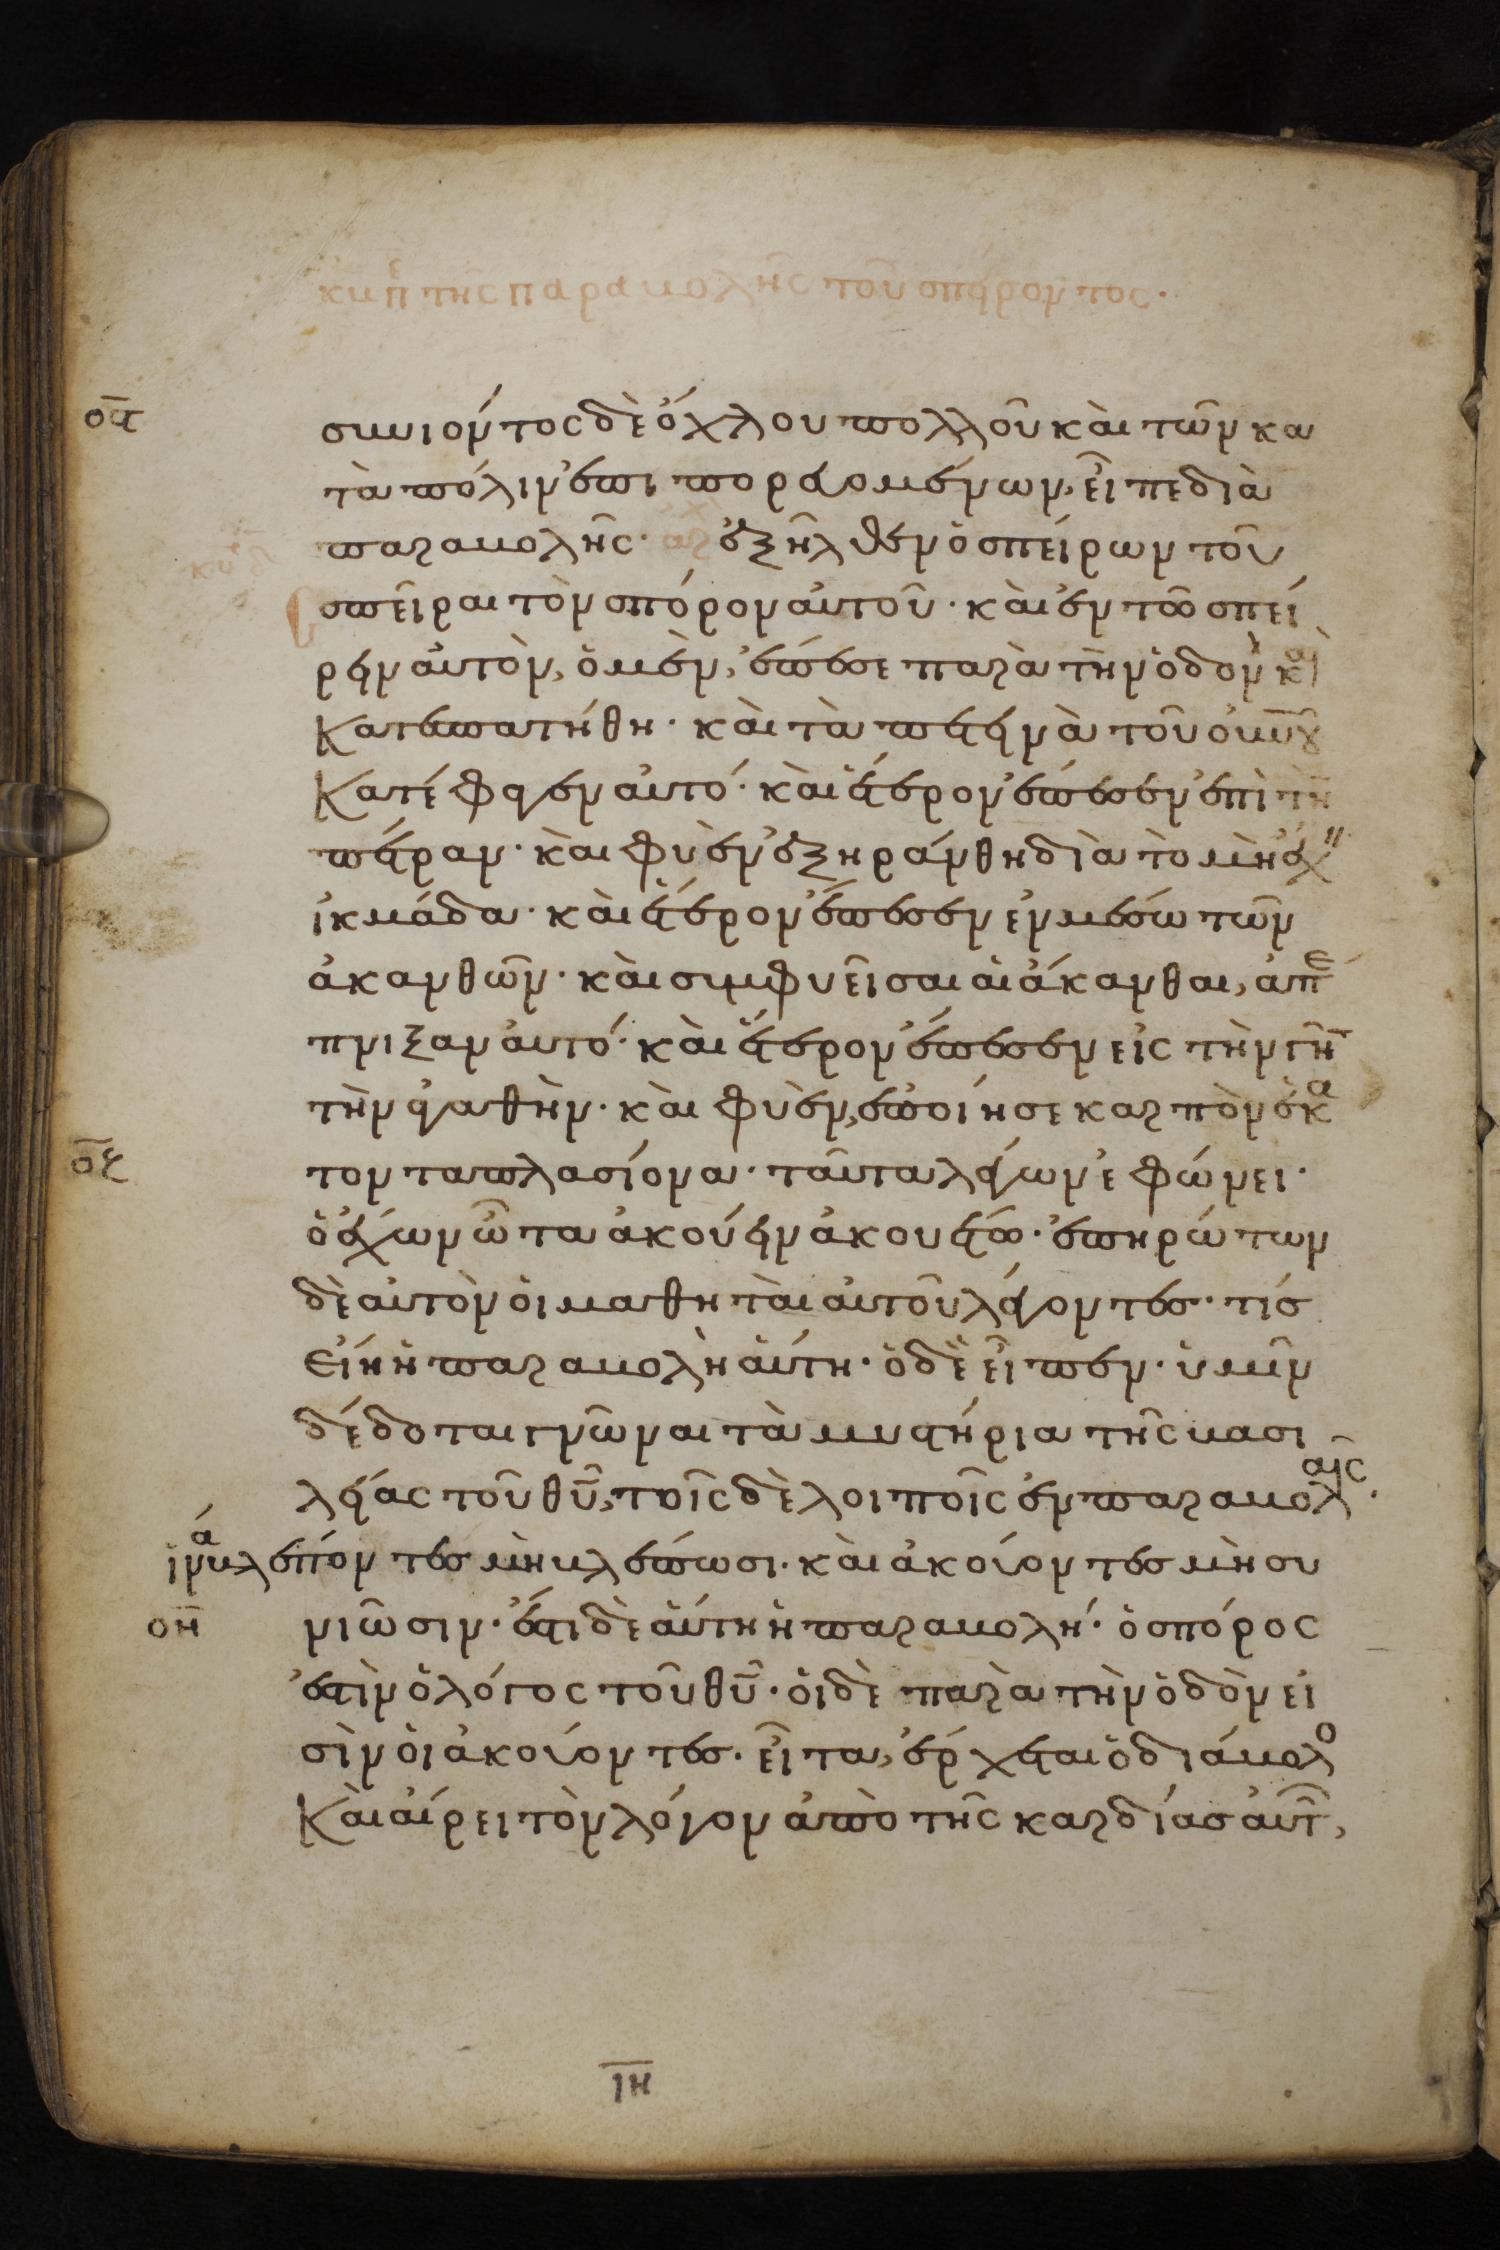 κδ πε της παραβολῆς τοῦ σπείροντος·
οϛ
συνιόντος δὲ ὄχλου πολλοῦ καὶ τῶν κα
τὰ πόλιν ἐπιπορευομένων, εἶπε διὰ
παραβολῆς· ἐξῆλθεν ὁ σπείρων τοῦ
σπεῖραι τὸν σπόρον αὐτοῦ· καὶ ἐν τῶ σπεί
ρειν αὐτὸν, ὁ μὲν, ἔπεσε παρὰ τὴν ὁδὸν καὶ
κατεπατήθη· καὶ τὰ πετεινὰ τοῦ οὐνου
κατέφαγεν αὐτό· καὶ ἕτερον ἔπεσεν ἐπὶ τὴν
πέτραν· καὶ φυὲν ἐξηράνθη διὰ τὸ μὴ ἔχ
ἰκμάδα· καὶ ἕτερον ἔπεσεν ἐν μέσω τῶν
ἀκανθῶν· καὶ συμφυεῖσαι αἱ ἄκανθαι, ἀπέ
πνιξαν αὐτό· καὶ ἕτερον ἔπεσεν εἰς τὴν γῆν
τὴν ἀγαθὴν· καὶ φυὲν, ἐποίησε καρπὸν ἑκα
οζ
τονταπλασίονα· ταῦτα λέγων ἐφώνει·
ὁ ἔχων ὦτα ἀκούειν ἀκουέτω· ἐπηρώτων
δὲ αὐτὸν οἱ μαθηταὶ αὐτοῦ λέγοντες· τίς
εἴη ἡ παραβολὴ αὕτη· ὁ δὲ εἶπεν· ὑμῖν
δέδοται γνῶναι τὰ μυστήρια τῆς βασι
λείας τοῦ θυ, τοῖς δὲ λοιποῖς ἐν παραβολαῖς·
ἵνα βλέποντες μὴ βλέπωσι· καὶ ἀκούοντες μὴ συ
οη
νιῶσιν· ἔστι δὲ αὕτη ἡ παραβολή· ὁ σπόρος
ἐστὶν ὁ λόγος τοῦ θυ· οἱ δὲ παρὰ τὴν ὁδὸν εἰ
σὶν οἱ ἀκούοντες· εἶτα, ἔρχεται ὁ διάβολο
καὶ αἴρει τὸν λόγον ἀπὸ τῆς καρδίας αὐτ,
ιη